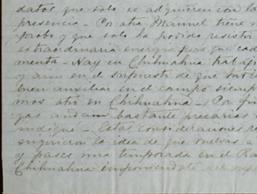 datos que solo se adquieren con la
presencia. Por otra Manuel tiene
probo y que solo ha podido resistir
extraordinaria energia pero que cada
menta - Hay en Chihuahua
y aun en el supuesto de que
buen auxiliar en el campo siempre
mos otro en Chihuahua - Por fin
gas andan bastante precarias
indique - Estas consideraciones
sugirieron la idea de que vuelvas a
y pases una temporada en el
Chihuahua imponiendote de